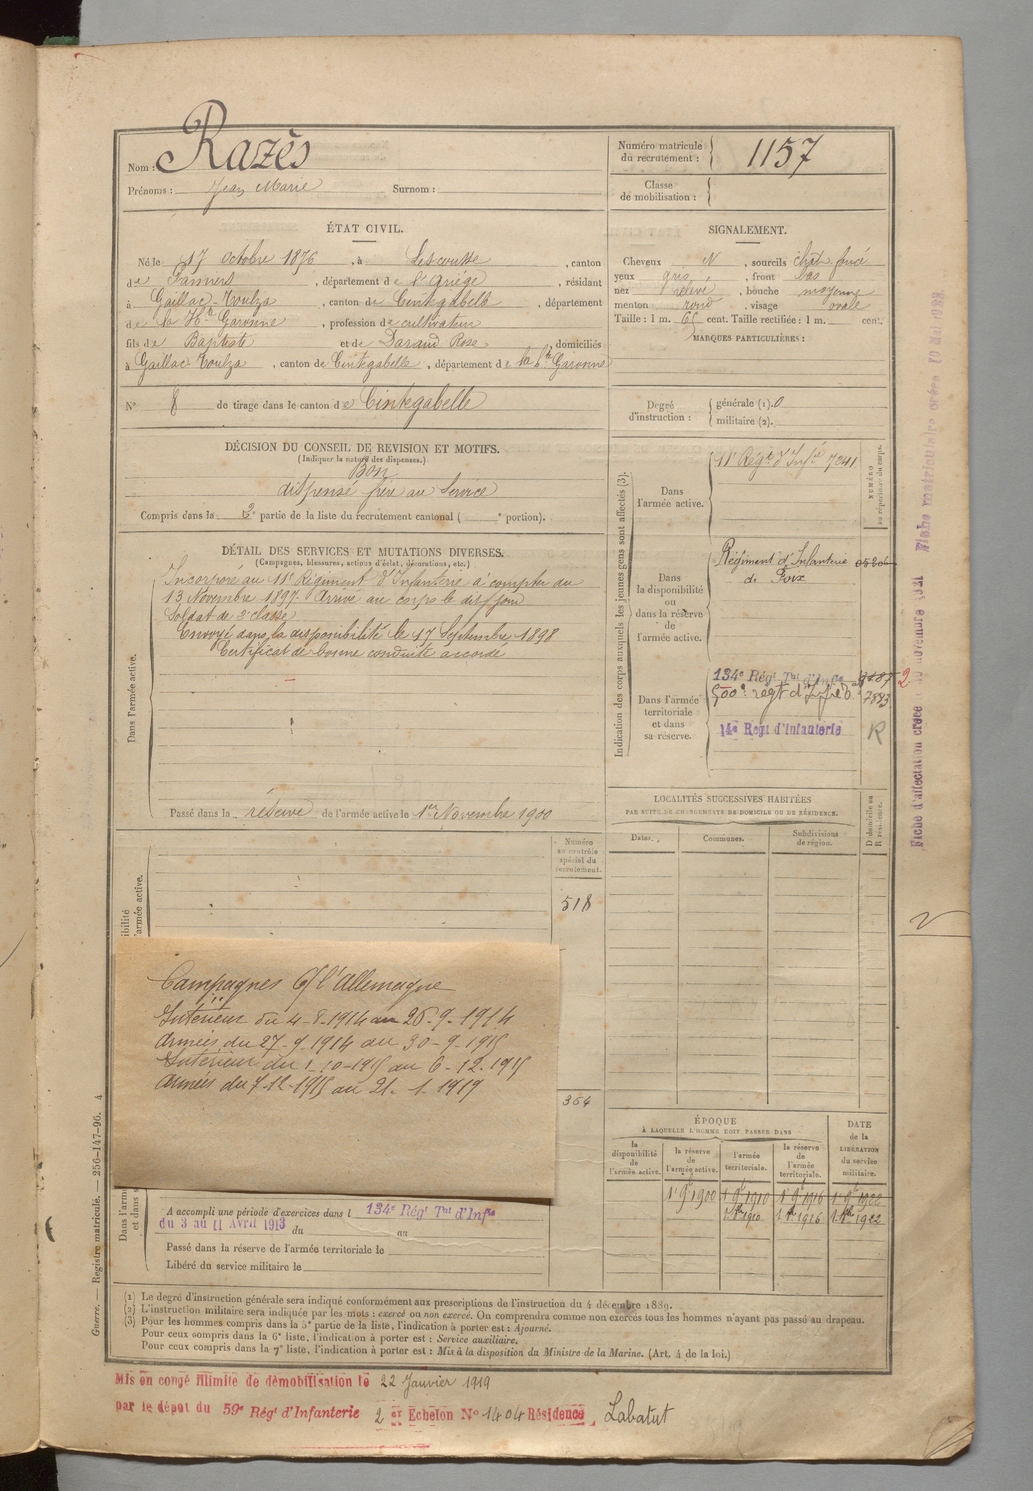 Nom : Razès
Prénoms : Jean Marie Surnom :
Numéro matricule du recrutement : 1157
Classe de mobilisation :
ÉTAT CIVIL.
Né le 17 octobre 1876, à Lescousse, canton
de Pamiers, département de l'Ariège, résidant
à Gaillac-Toulza, canton de Cintegabelle, département
de la Hte Garonne, profession de cultivateur
fils de Baptiste et de Daraud Rose, domiciliés
à Gaillac Toulza, canton de Cintegabelle, département de la hte Garonne
N° 8 de tirage dans le canton de Cintegabelle
SIGNALEMENT.
Cheveux N, sourcils chât. foncé
yeux gris, front bas
nez relevé, bouche moyenne
menton rond, visage ovale
Taille : 1 m. 65 cent. Taille rectifiée : 1 m. cent.
MARQUES PARTICULIÈRES :
Degré d'instruction : générale (1). 0
militaire (2).
DÉCISION DU CONSEIL DE REVISION ET MOTIFS.
(Indiquer la nature des dispenses.)
Bon
dispensé frère au Service
Compris dans la 2e partie de la liste du recrutement cantonal ( e portion).
DÉTAIL DES SERVICES ET MUTATIONS DIVERSES.
(Campagnes, blessures, actions d'éclat, décorations, etc.)
Dans l'armée active.
Incorporé au 11e Régiment d'Infanterie à compter du
13 Novembre 1897. Arrivé au corps le dit jour
Soldat de 2e classe
Envoyé dans la disponibilité le 17 Septembre 1898
Certificat de bonne conduite accordé
Passé dans la réserve de l'armée active le 1er Novembre 1900
Indication des corps auxquels les jeunes gens sont affectés (3).
NUMÉRO au répertoire du corps.
Dans l'armée active.
11e Régt d'Infie 7241
Dans la disponibilité ou dans la réserve de l'armée active.
Régiment d'Infanterie 05206
de Foix
Dans l'armée territoriale et dans sa réserve.
134e Régt Tal d'Infie
500e régt d'Infie 7893
14e Régt d'Infanterie R
2
LOCALITÉS SUCCESSIVES HABITÉES
PAR SUITE DE CHANGEMENTS DE DOMICILE OU DE RÉSIDENCE.
Dates. Communes. Subdivisions de région. D domicile ou R résidence.
Numéro au contrôle spécial du recrutement.
518
364
Campagnes c/ l'Allemagne
Intérieur du 4-8-1914 au 26-9-1914
Armées du 27-9-1914 au 30-9-1915
Intérieur du 1-10-1915 au 6-12-1915
Armées du 7-12-1915 au 21-1-1919
ÉPOQUE
À LAQUELLE L'HOMME DOIT PASSER DANS
la disponibilité de l'armée active.
la réserve de l'armée active.
l'armée territoriale.
la réserve de l'armée territoriale.
DATE de la LIBÉRATION du service militaire.
1 9e 1900 1 9e 1910 1 9e 1916 1 9e 1922
1910 1916 1922
A accompli une période d'exercices dans l 134e Régt Tal d'Infie
du 3 au 11 Avril 1913 du au
Passé dans la réserve de l'armée territoriale le
Libéré du service militaire le
(1) Le degré d'instruction générale sera indiqué conformément aux prescriptions de l'instruction du 4 décembre 1889.
(2) L'instruction militaire sera indiquée par les mots : exercé ou non exercé. On comprendra comme non exercés tous les hommes n'ayant pas passé au drapeau.
(3) Pour les hommes compris dans la 5e partie de la liste, l'indication à porter est : Ajourné.
Pour ceux compris dans la 6e liste, l'indication à porter est : Service auxiliaire.
Pour ceux compris dans la 7e liste, l'indication à porter est : Mis à la disposition du Ministre de la Marine. (Art. 4 de la loi.)
Mis en congé illimité de démobilisation le 22 Janvier 1919
par le dépôt du 59e Régt d'Infanterie 2 er Echelon N° 1404 Résidence Labatut
Guerre. — Registre matricule. — 256-147-96. 4
Fiche d'affectation créée novembre 1921 Fiche matriculaire créée 10 Mai